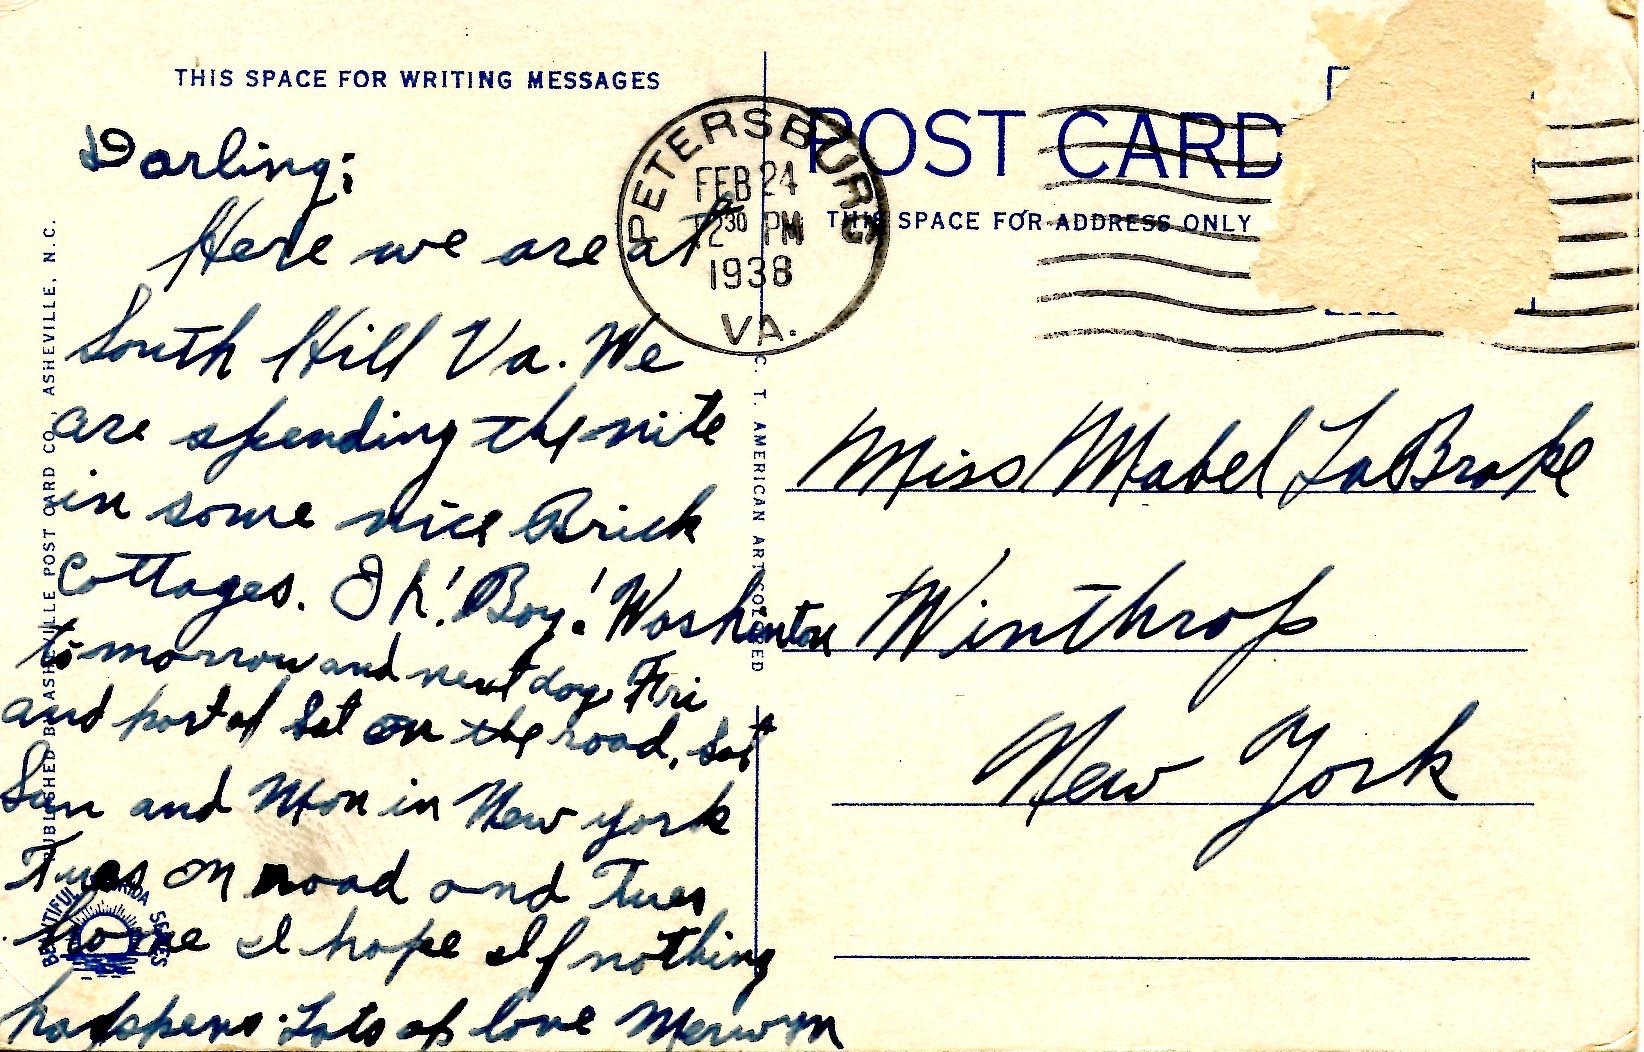 THIS SPACE FOR WRITING MESSAGES
Darling;
Here we are at
South Hill Va. We
are spending the nite
in some nice Brick
Cottages. Oh! Boy! Washenton
tomorrow and next day. Fri
and part of Sat on the road, Sat
Sun and Mon in New York
Tues on road and Tues
home I hope If nothing
happens. Lots of love Merwyn
PUBLISHED BY ASHEVILLE POST CARD CO., ASHEVILLE, N.C.
BEAUTIFUL FLORIDA SCENES
PETERSBURG
FEB 24
12 30 PM
1938
VA.
C. T. AMERICAN ART COLORED
POST CARD
THIS SPACE FOR ADDRESS ONLY
Miss Mabel LaBrake
Winthrop
New York